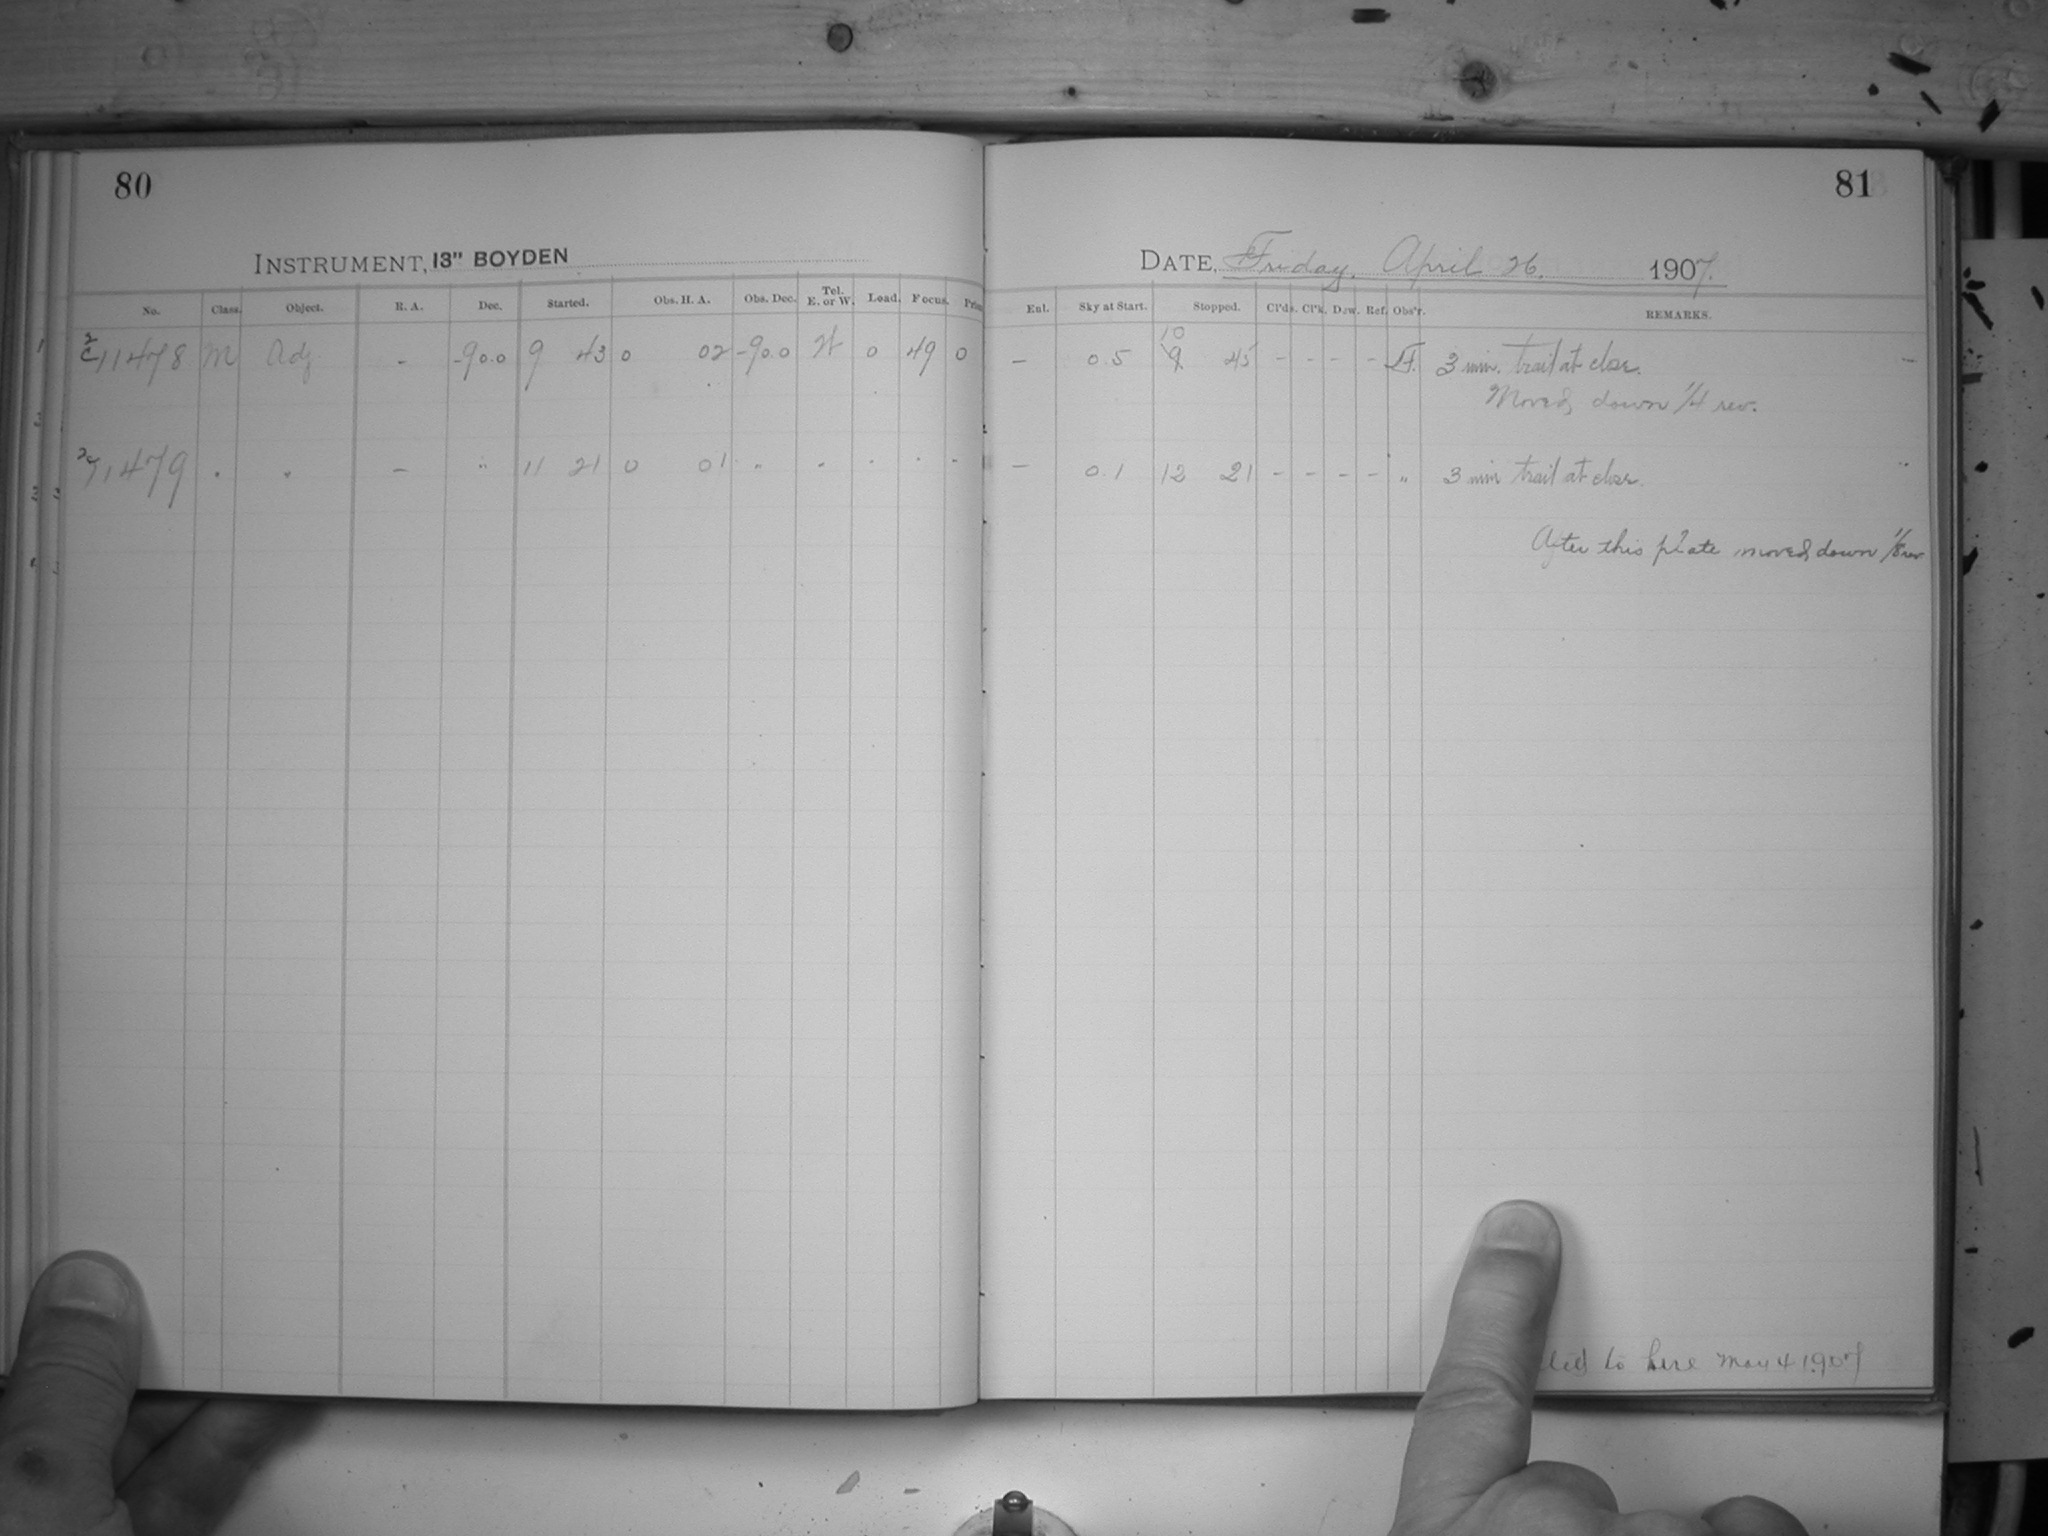 80
INSTRUMENT, 13" BOYDEN
No. Class. Object. R. A. Dec. Started. Obs. H. A. Obs. Dec. Tel. E. or W. Lead. Focus.
11478 M Adj - -90.0 9 43 0 02 -90.0 W 0 49 0
11479 " " - " 11 21 0 01 " " " " "
81
DATE, Friday, April 26. 1907.
Sky at Start. Stopped. Cl'ds. Cl'k. Dew. Ref. Obs'r. REMARKS.
10
- 0.5 9 45 - - - - F. 3 min. trail at close. -
Moved down 1/4 rev.
- 0.1 12 21 - - - - " 3 min trail at close. "
After this plate moved down 1/8 rev
to here May 4 1907